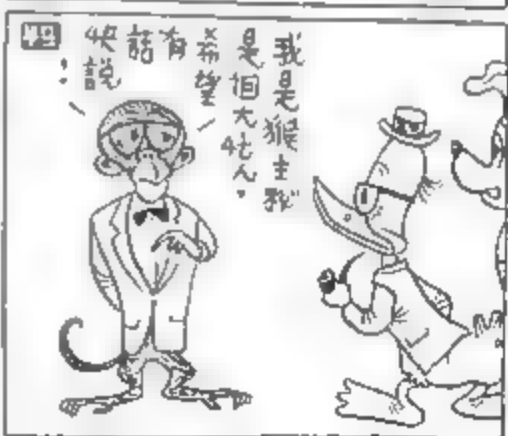 我是猴主我
是個大忙人。
希望
有
話
快說
：